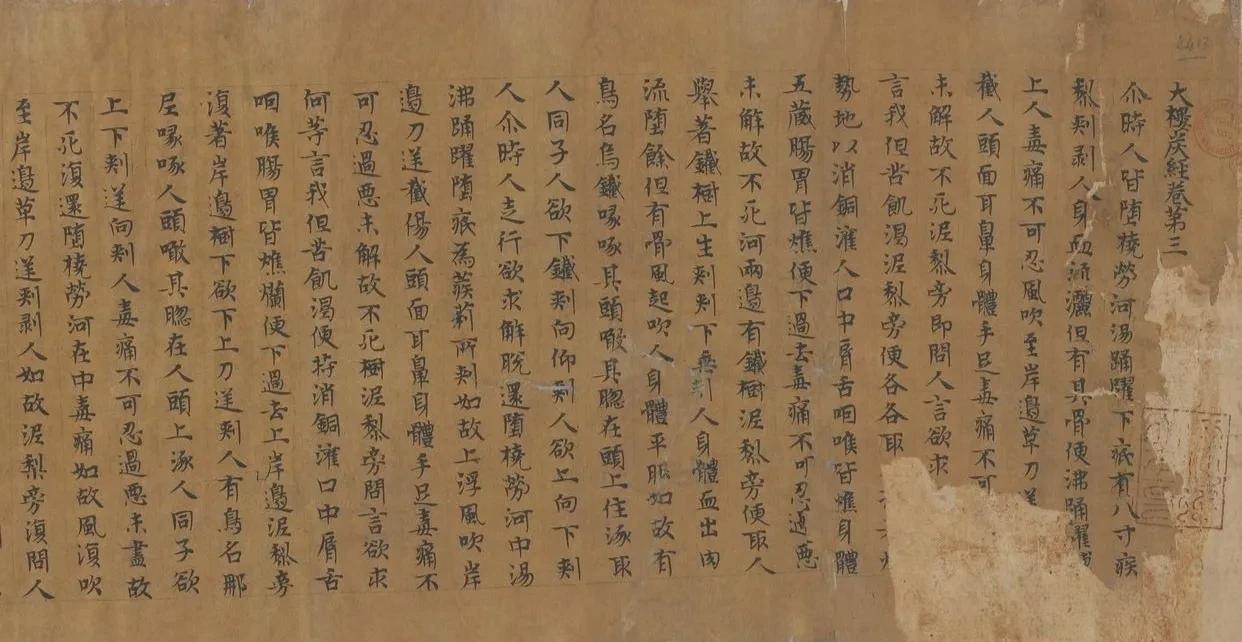 大樓炭經卷第三
尒時人皆墮橈勞河湯踊躍下底有八寸蒺
䔧刾剥人身血流灑但有其骨便沸踊躍
上人毒痛不可忍風吹至岸邊草刀逆
截人頭面耳鼻身體手足毒痛不可
未解故不死泥黎旁即問人言欲求
言我但苦飢渴泥黎旁便各各取
勢地以消銅灌人口中脣舌咽喉皆燋身體
五藏腸胃皆燋便下過去毒痛不可忍過惡
未解故不死河兩邊有鐵樹泥黎旁便取人
舉著鐵樹上生刾刾下垂刾人身體血出肉
流墮餘但有骨風起吹人身體平服如故有
鳥名烏鐵喙啄其頭噉其腦在頭上住涿取
人同子人欲下鐵刾向仰刾人欲上向下刾
人尒時人走行欲求解脫還墮橈勞河中湯
沸踊躍墮底為蒺䔧所刾如故上浮風吹岸
邊刀逆截傷人頭面耳鼻身體手足毒痛不
可忍過惡未解故不死樹泥黎旁問言欲求
何等言我但苦飢渴便持消銅灌口中脣舌
咽喉腸胃皆燋爛便下過去上岸邊泥黎旁
復著岸邊樹下欲下上刀逆刾人有鳥名那
尼喙啄人頭噉其腦在人頭上涿人同子欲
上下刾逆向刾人毒痛不可忍過惡未盡故
不死復還墮橈勞河在中毒痛如故風復吹
至岸邊草刀逆刾剥人如故泥梨旁復問人